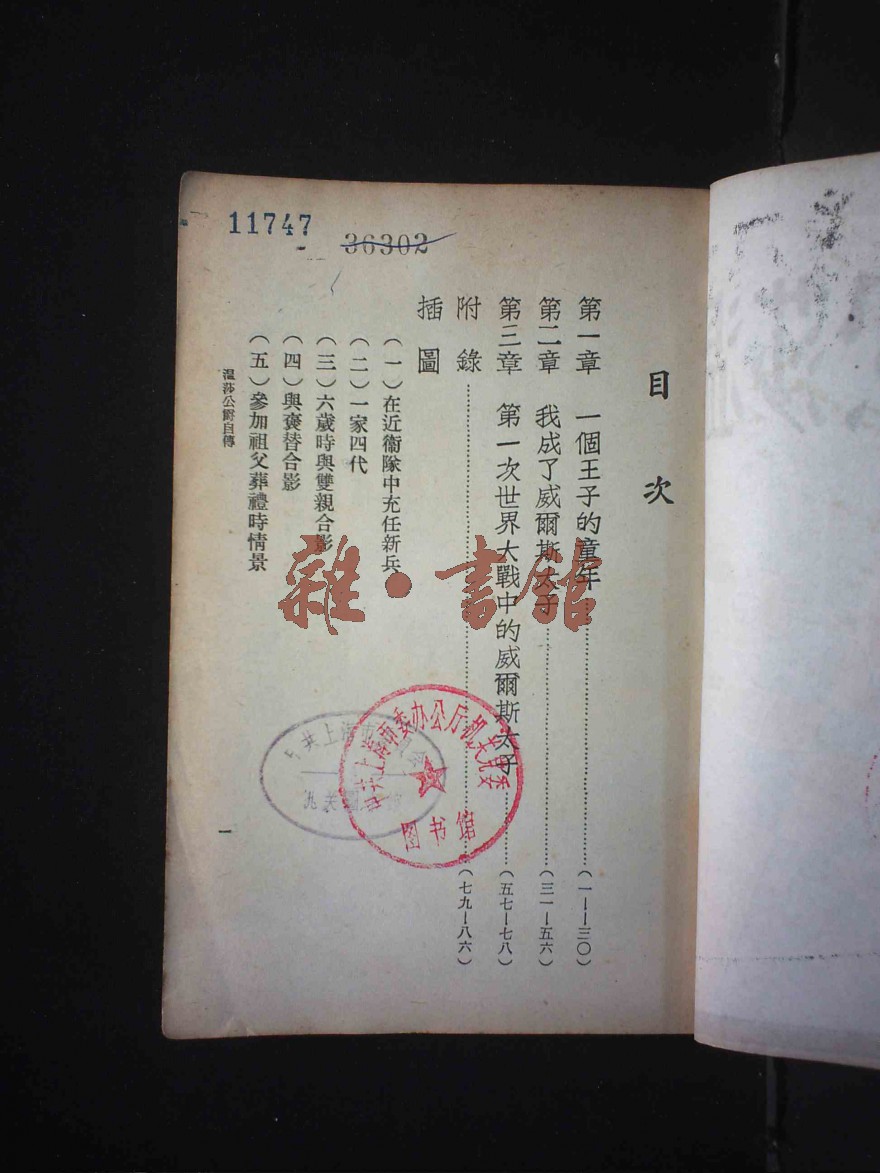 11747
36302
目次
第一章 一個王子的童年……(一——三〇)
第二章 我成了威爾斯太子……(三一—五六)
第三章 第一次世界大戰中的威爾斯太子……(五七—七八)
附錄……(七九—八六)
插圖
(一)在近衞隊中充任新兵
(二)一家四代
(三)六歲時與雙親合影
(四)與褒替合影
(五)參加祖父葬禮時情景
溫莎公爵自傳
一
雜·書館
中共上海市委办公厅机关党委
图书馆
中共上海市